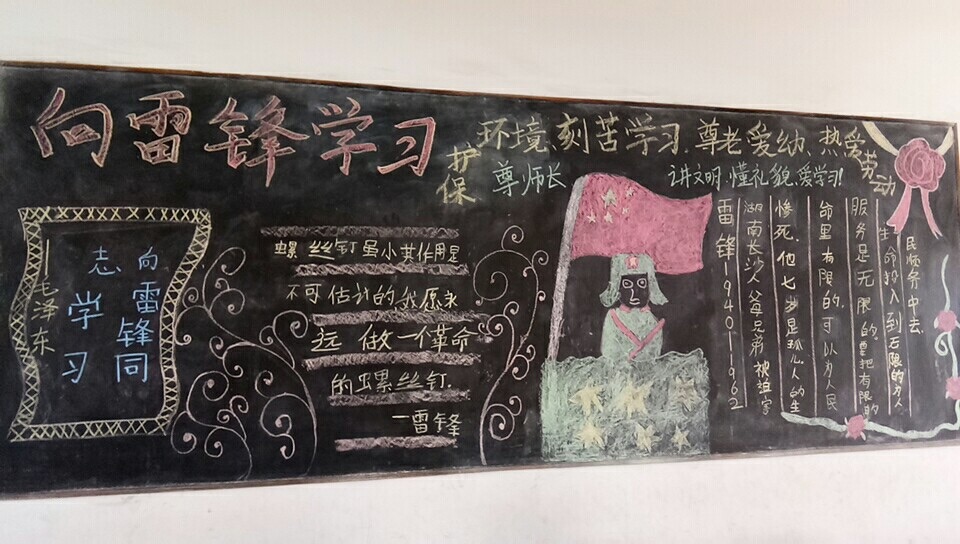 向雷锋学习
护保
环境、刻苦学习、尊老爱幼、热爱劳动
尊师长
讲文明、懂礼貌、爱学习!
向雷锋同
志学习
毛泽东
螺丝钉虽小其作用是
不可估计的我愿永
远做一个革命
的螺丝钉.
一雷锋
雷锋一940一1962
湖南长沙人兄弟被迫害
惨死.他七岁是孤儿人的生
命里有限的.可以为人民
服务是无限的.要把有限的
生命投入到无限的为人
民师务中去